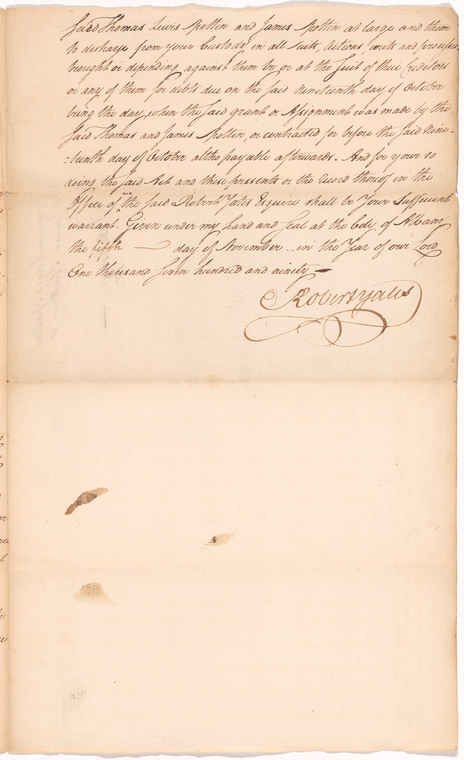 said Thomas Lewis Spotten and James Spotten at large and them
to discharge from your Custody in all Suits, Actions, writs and
brought or depending against them by or at the Suit of their Creditors
or any of them for debts due on the said nineteenth day of October
being the day when the said grant or Assignment was made by the
said Thomas and James Spotten, or contracted for before the said Nine-
-teenth day of October altho payable afterwards. And for your so
doing the said Act and these presents or the record thereof in the
Office of the said Robert Yates Esquire shall be Your Sufficient
warrant. Given under my hand and Seal at the City of Albany
the fifth — day of November .. in the Year of our Lord
One thousand seven hundred and ninety —
Robert Yates